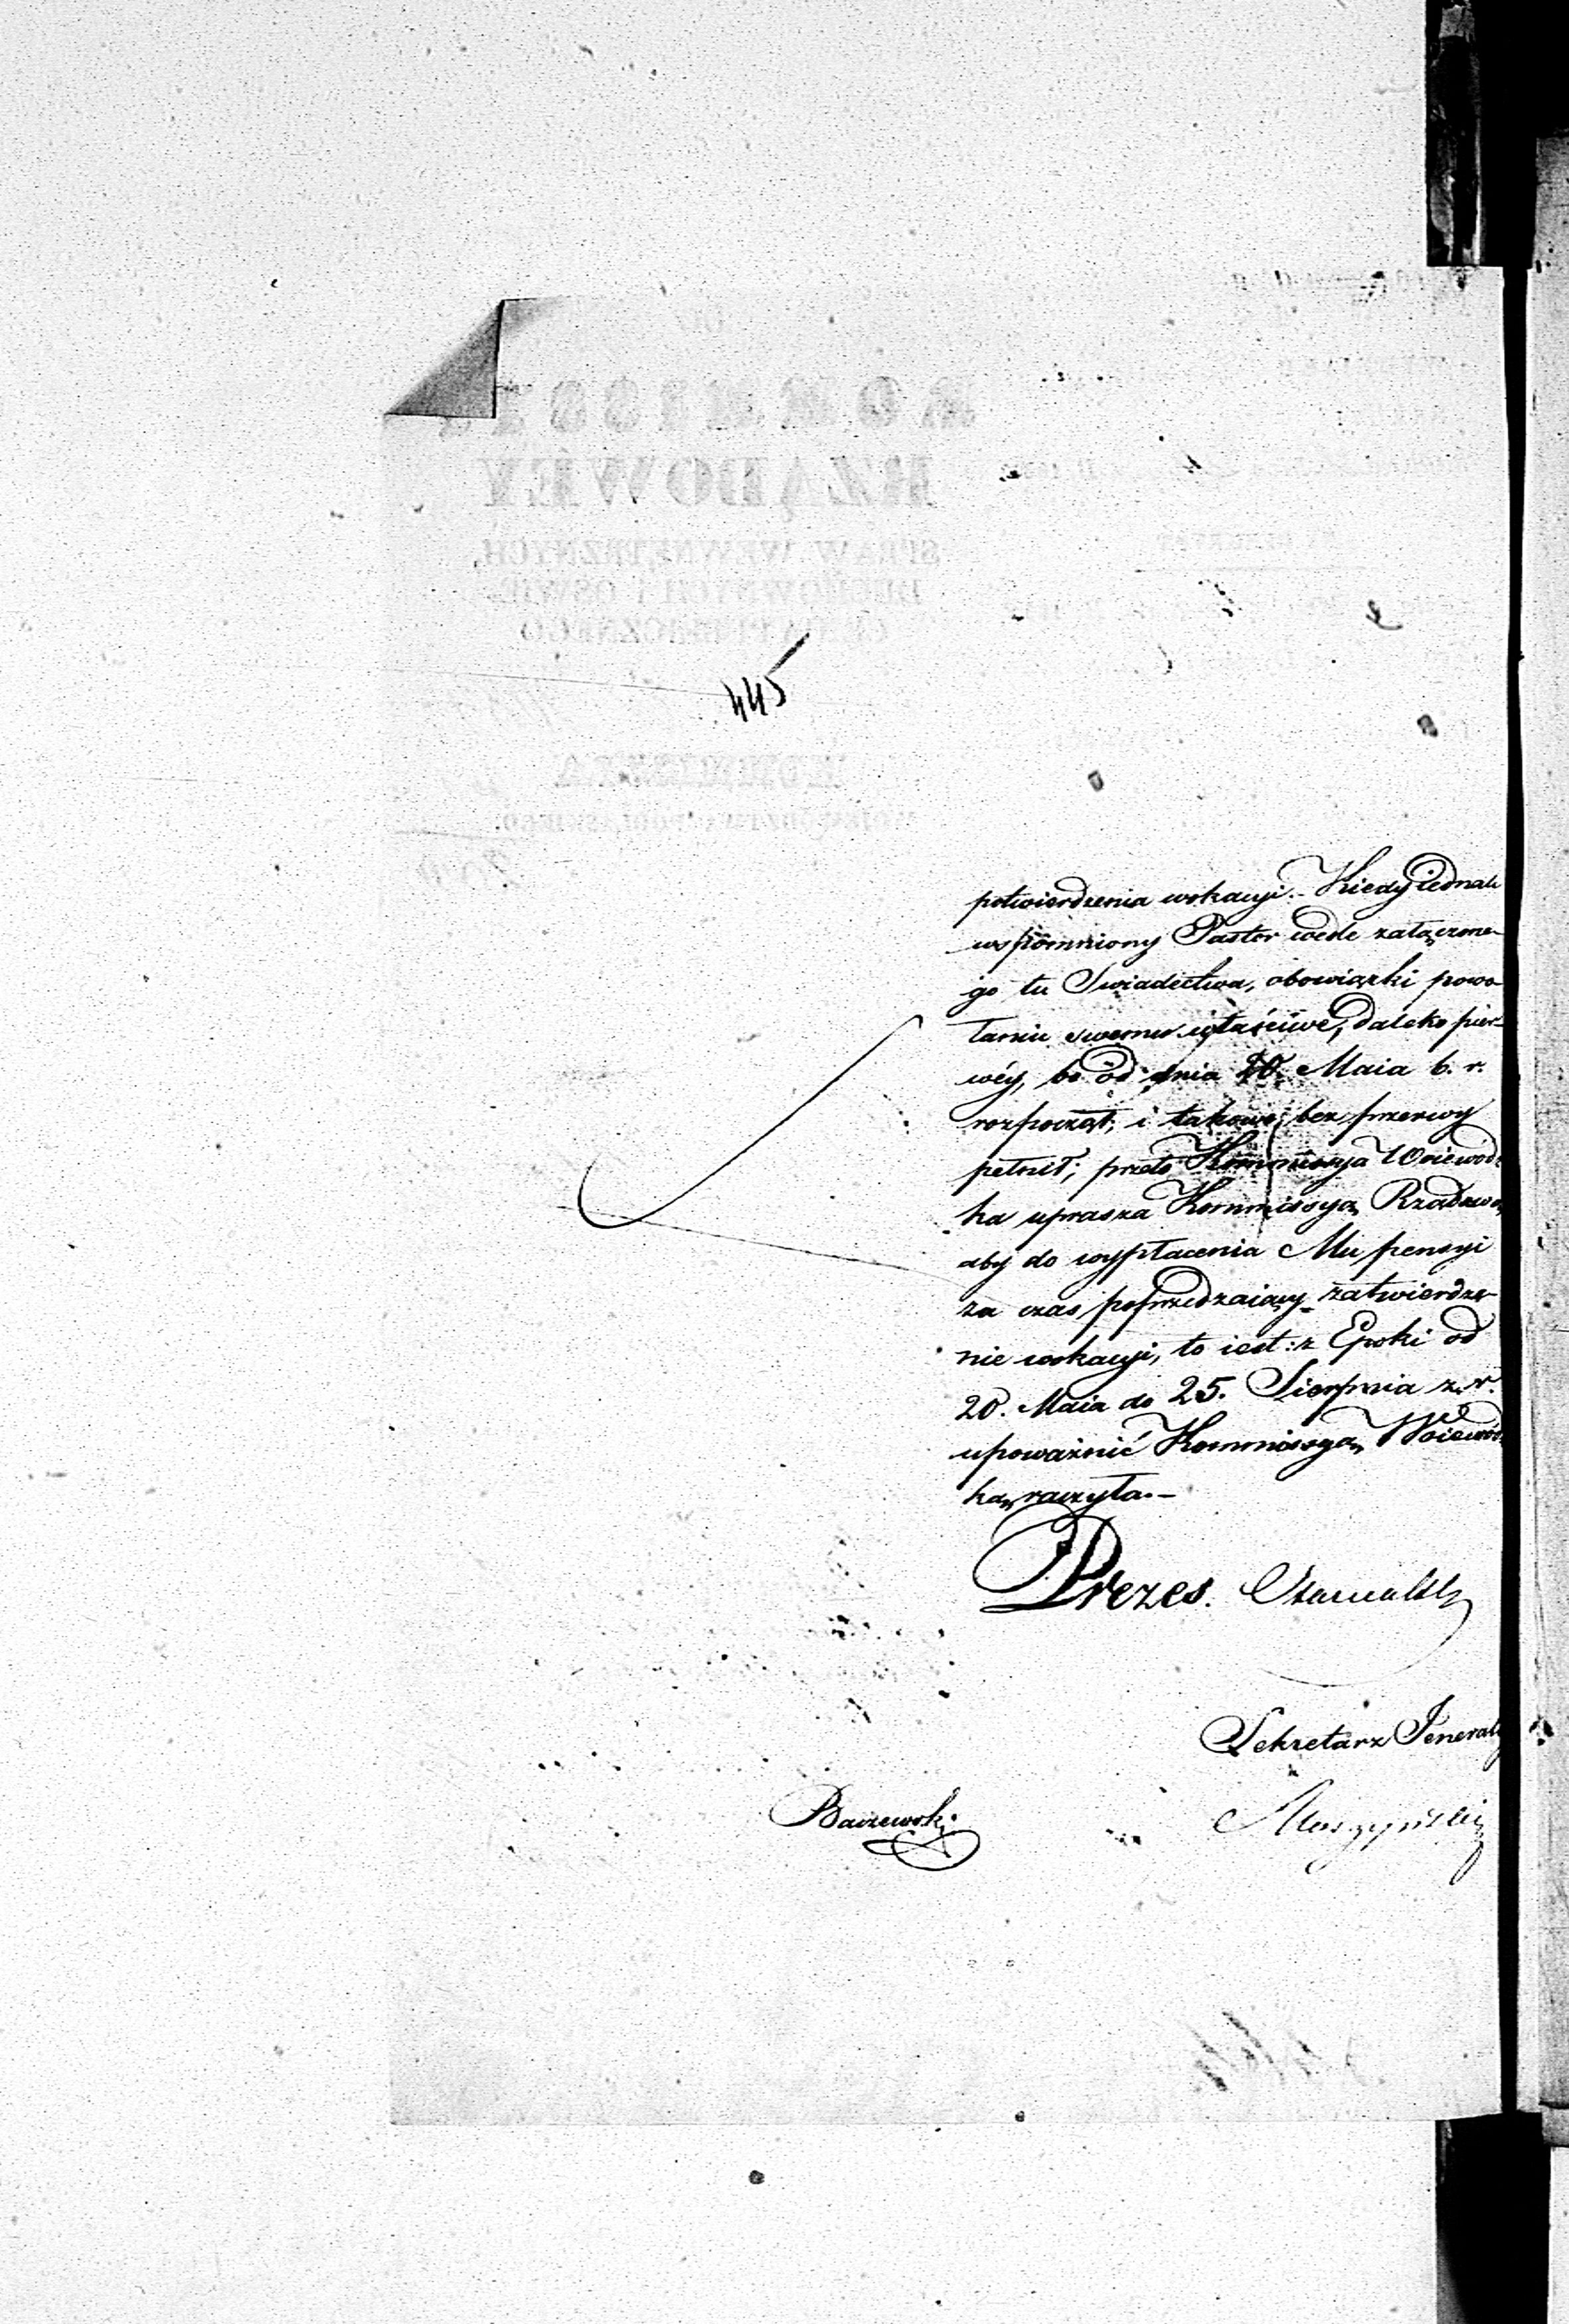 445
potwierdzenia wokacyi. Kiedy iednak
wspomniony Pastor wedle załączone-
go tu Swiadectwa, obowiązki powo-
łaniu swemu właściwe, daleko pier-
wéy, bo od dnia 20. Maia b. r.
rozpoczął, i takowe bez przerwy
pełnił; przeto Kommissya Woiewódz
ka uprasza Kommissyą Rządową
aby do wypłacenia Mu pensyi
za czas poprzedzaiący zatwierdze-
nie wokacyi, to iest: z Epoki od
20. Maia do 25. Sierpnia z. r.
upoważnić Kommissyą Woiewódz
ką raczyła.—
Prezes.
Sekretarz Jeneralny
Baczewski